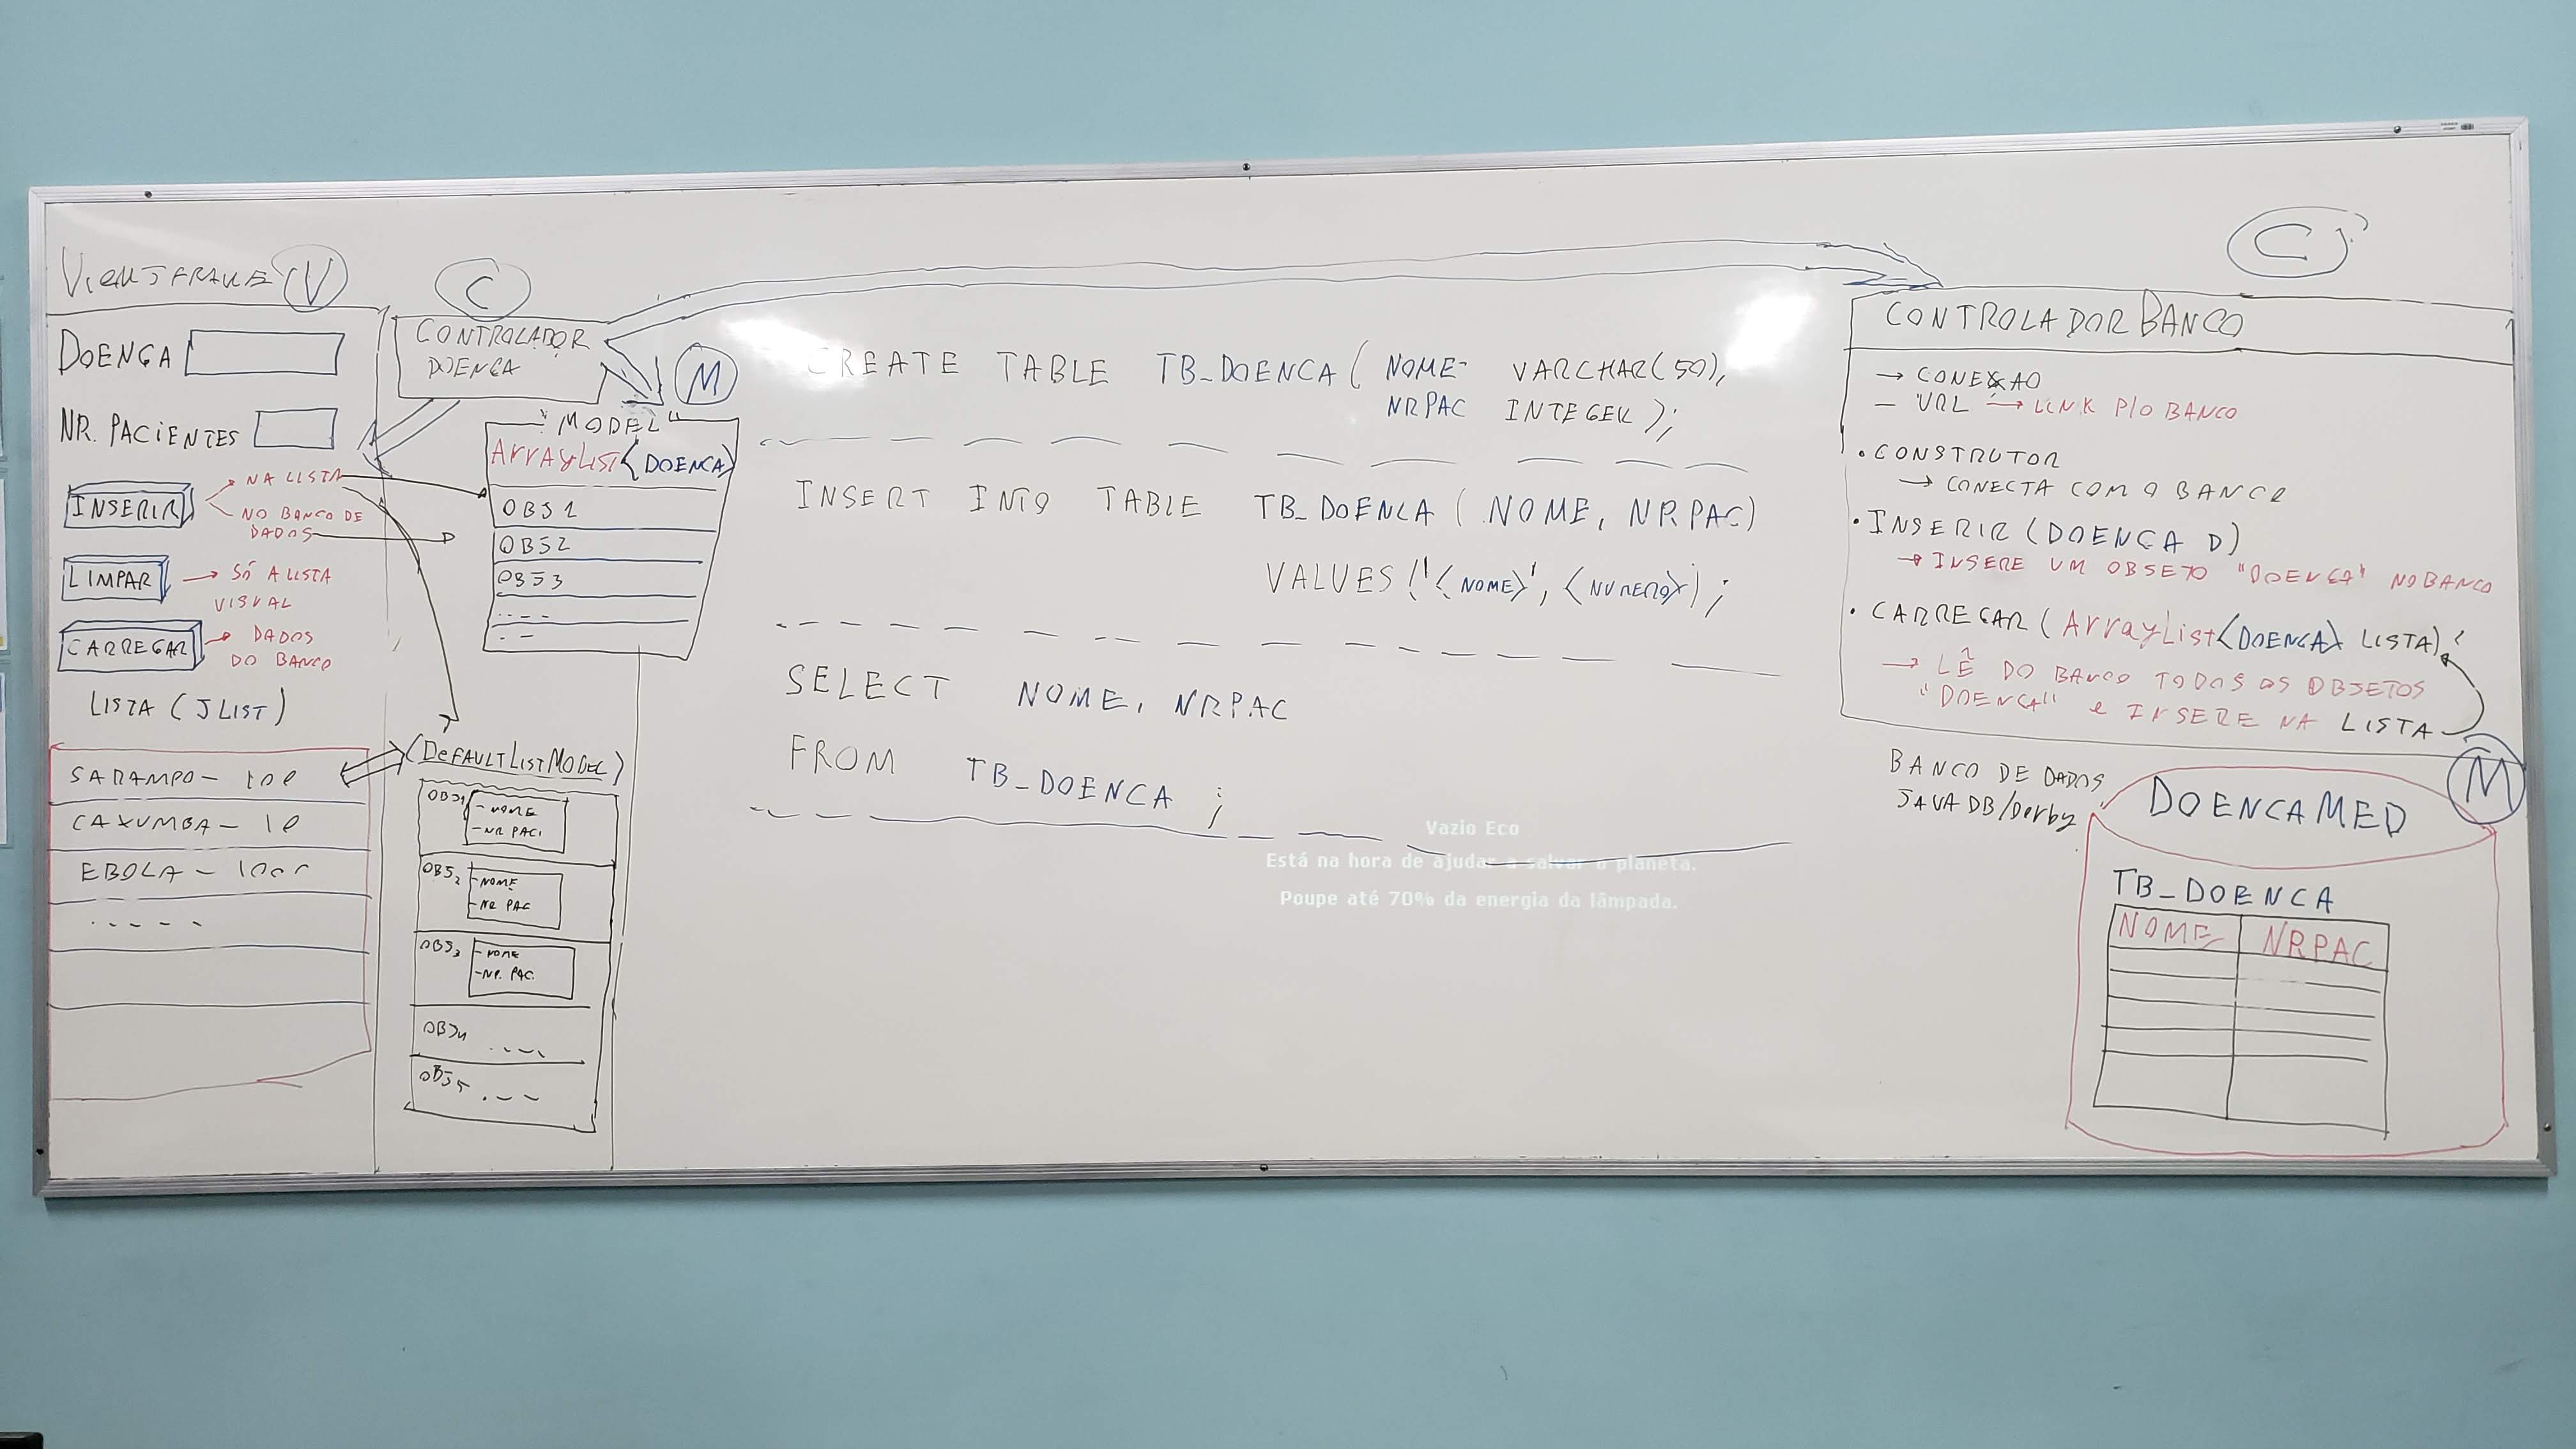 VIEWJFRAME V
DOENÇA
NR. PACIENTES
INSERIR
NA LISTA
NO BANCO DE
DADOS
LIMPAR
SÓ A LISTA
VISUAL
CARREGAR
DADOS
DO BANCO
LISTA (JLIST)
SARAMPO - 100
CAXUMBA - 10
EBOLA - 1000
C
CONTROLADOR
DOENÇA
M
"MODEL"
ArrayList<DOENCA>
OBJ1
OBJ2
OBJ3
(DEFAULTLISTMODEL)
OBJ1
- NOME
- NR PACI
OBJ2
- NOME
- NR PAC
OBJ3
- NOME
- NR. PAC.
OBJ4
OBJ5
CREATE TABLE TB_DOENCA ( NOME VARCHAR(50),
NRPAC INTEGER );
INSERT INTO TABLE TB_DOENCA ( NOME, NRPAC)
VALUES ('<NOME>', <NUMERO>);
SELECT NOME, NRPAC
FROM TB_DOENCA ;
Vazio Eco
Está na hora de ajudar a salvar o planeta.
Poupe até 70% da energia da lâmpada.
C
CONTROLADOR BANCO
→ CONEXAO
- URL → LINK P/O BANCO
• CONSTRUTOR
→ CONECTA COM O BANCO
• INSERIR (DOENÇA D)
→ INSERE UM OBJETO "DOENÇA" NO BANCO
• CARREGAR (ArrayList<DOENCA> LISTA)
→ LÊ DO BANCO TODOS OS OBJETOS
"DOENCA" e INSERE NA LISTA
BANCO DE DADOS
JAVA DB/Derby
M
DOENCAMED
TB_DOENCA
NOME NRPAC